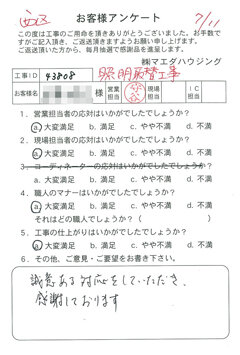 西区
お客様アンケート
7/11
この度は工事のご用命を頂きありがとうございました。お手数で
すがご記入頂き、ご返送頂きますようお願い申し上げます。
ご返送頂いた方から、毎月抽選で感謝品を進呈します。
㈱マエダハウジング
工事ID 43808 照明取替工事
様 営業担当 現場担当 IC担当
1. 営業担当者の応対はいかがでしたでしょうか?
a.大変満足 b.満足 c.やや不満 d.不満
2. 現場担当者の応対はいかがでしたでしょうか?
a.大変満足 b.満足 c.やや不満 d.不満
3. コーディネーターの応対はいかがでしたでしょうか?
a.大変満足 b.満足 c.やや不満 d.不満
4. 職人のマナーはいかがでしたでしょうか?
a.大変満足 b.満足 c.やや不満 d.不満
それはどの職人でしょうか?( )
5. 工事の仕上がりはいかがでしたでしょうか?
a.大変満足 b.満足 c.やや不満 d.不満
6. その他、ご意見・ご要望をお書き下さい。
誠意ある対応をしていただき、
感謝しております